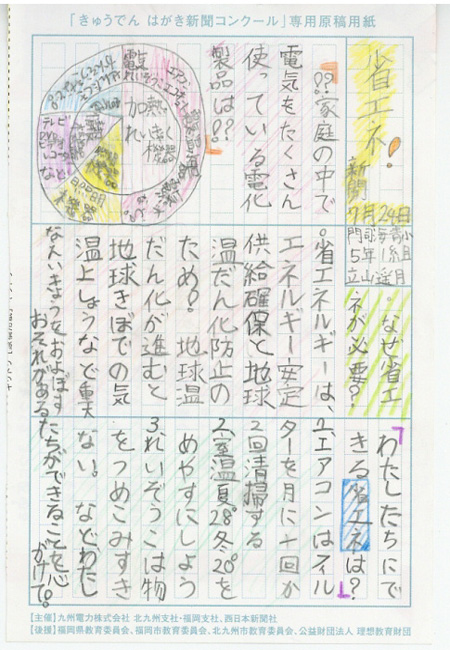 「きゅうでん はがき新聞コンクール」専用原稿用紙
省エネ!
新聞
7月24日
5年1組
⁇家庭の中で
電気をたくさん
使っている電化
製品は⁇
加熱
機器
テレビ
など
・なぜ省エ
ネが必要?
。省エネルギーは、
エネルギー安定
供給確保と地球
温だん化防止の
ため?地球温
だん化が進むと
地球きぼでの気
温上しょうなど重大
なえいきょうをおよぼす
おそれがある
「わたしたちにで
きる省エネは?」
1エアコンはフィル
ターを月に一回か
2回清掃する
2.室温夏28°冬20°を
めやすにしよう
3.れいぞうこは物
をつめこみすぎ
ない。などわたし
たちができることを心
がけて。
【主催】九州電力株式会社 北九州支社・福岡支社、西日本新聞社
【後援】福岡県教育委員会、福岡市教育委員会、北九州市教育委員会、公益財団法人 理想教育財団